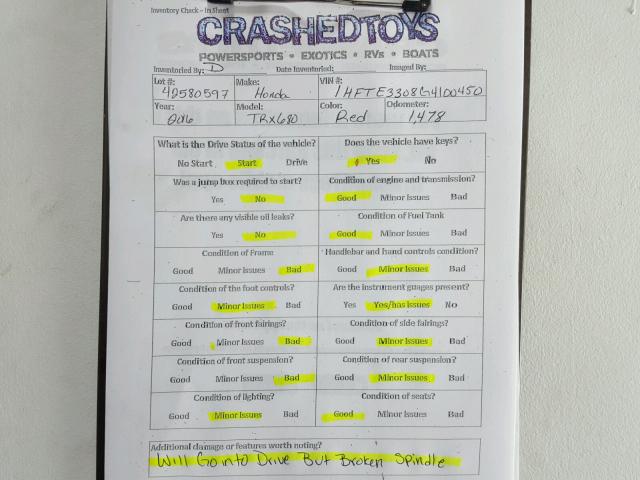 Inventory Check - In Sheet
CRASHEDTOYS
POWERSPORTS • EXOTICS • RVs • BOATS
Inventoried By: D Date Inventoried: Imaged By:
Lot #: Make: VIN #:
42580597 Honda 1HFTE3308G4100450
Year: Model: Color: Odometer:
2016 TRX680 Red 1,478
What is the Drive Status of the vehicle? Does the vehicle have keys?
No Start Start Drive Yes No
Was a jump box required to start? Condition of engine and transmission?
Yes No Good Minor Issues Bad
Are there any visible oil leaks? Condition of Fuel Tank
Yes No Good Minor Issues Bad
Condition of Frame Handlebar and hand controls condition?
Good Minor Issues Bad Good Minor Issues Bad
Condition of the foot controls? Are the instrument guages present?
Good Minor Issues Bad Yes Yes/has issues No
Condition of front fairings? Condition of side fairings?
Good Minor Issues Bad Good Minor Issues Bad
Condition of front suspension? Condition of rear suspension?
Good Minor Issues Bad Good Minor Issues Bad
Condition of lighting? Condition of seats?
Good Minor Issues Bad Good Minor Issues Bad
Additional damage or features worth noting?
Will Go into Drive But Broken Spindle